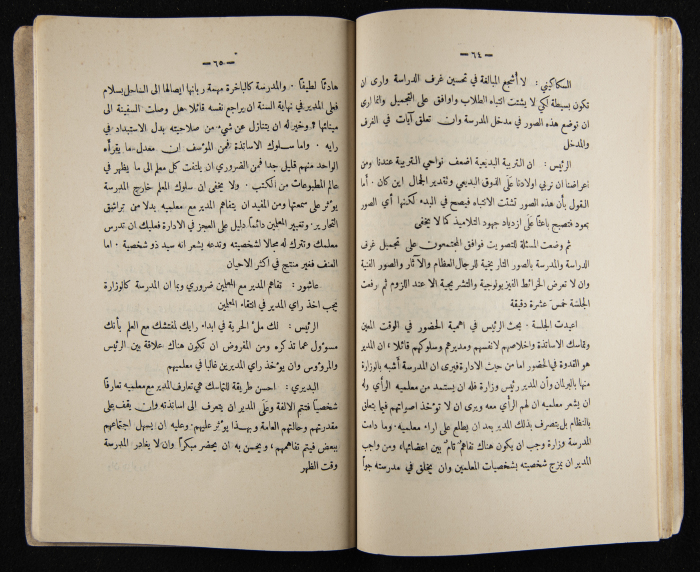 — ٦٤ —
السكاكيني : لا أشجع المبالغة في تحسين غرف الدراسة وارى ان
تكون بسيطة لكي لا يشتت انتباه الطلاب واوافق على التجميل وانما ارى
ان توضع هذه الصور في مدخل المدرسة وان تعلق آيات في الغرف
والمدخل
الرئيس : ان التربية البديعية اضعف نواحي التربية عندنا ومن
اغراضنا ان نربي اولادنا على الذوق البديعي وتقدير الجمال اين كان . أما
القول بأن هذه الصور تشتت الانتباه فيصح في البدء لكنها أي الصور
بعود فتصبح باعثًا على ازدياد جهود التلاميذ كما لا يخفى
ثم وضعت المسئلة للتصويت فوافق المجتمعون على تجميل غرف
الدراسة والمدرسة بالصور التاريخية للرجال العظام والآثار والصور الفنية
وان لا تعرض الخرائط الفيزيولوجية والتشريحية الا عند اللزوم ثم رفعت
الجلسة خمس عشرة دقيقة
اعيدت الجلسة . بحث الرئيس في اهمية الحضور في الوقت المعين
وتماسك الاساتذة واخلاصهم لانفسهم ومديرهم وسلوكهم قائلا : ان المدير
هو القدوة في الحضور اما من حيث الادارة فيرى ان المدرسة أشبه بالوزارة
منها بالبرلمان وأن المدير رئيس وزارة فله ان يستمد من معلميه الرأي وله
ان يشعر معلميه ان لهم الرأي معه ويرى ان لا تؤخذ اصواتهم فيما يتعلق
بالنظام بل يتصرف بذلك المدير بعد ان يطلع على اراء معلميه . وما دامت
المدرسة وزارة وجب ان يكون هناك تفاهم تام بين اعضائها ، ومن واجب
المدير ان يمزج شخصيته بشخصيات المعلمين وان يخلق في مدرسته جوًا
— ٦٥ —
هادئًا لطيفًا . والمدرسة كالباخرة مهمة ربانها ايصالها الى الساحل بسلام
فعلى المدير في نهاية السنة ان يراجع نفسه قائلا هل وصلت السفينة الى
مينائها ؟ وخير له ان يتنازل عن شيء من صلاحيته بدل الاستبداد في
رايه . واما سلوك الاساتذة فمن المؤسف ان معدل ما يقرأه
الواحد منهم قليل جدا فمن الضروري ان يلتفت كل معلم الى ما يظهر في
عالم المطبوعات من الكتب . ولا يخفى ان سلوك المعلم خارج المدرسة
يؤثر على سمعتها ومن المفيد ان يتفاهم المدير مع معلميه بدلا من تراشق
التحارير . وتغيير المعلمين دائمًا دليل على العجز في الادارة فعليك ان تدرس
معلمك وتترك له مجالا لشخصيته وتدعه يشعر انه سيد ذو شخصية . اما
العنف فغير منتج في اكثر الاحيان
عاشور : تفاهم المدير مع المعلمين ضروري وبما ان المدرسة كالوزارة
يجب اخذ راي المدير في انتقاء المعلمين
الرئيس : لك ملء الحرية في ابداء رايك لمفتشك مع العلم بأنك
مسؤول عما تذكره ومن المفروض ان تكون هناك علاقة بين الرئيس
والمرؤوس وان يؤخذ راي المديرين غالبا في معلميهم
البديري : احسن طريقة للتماسك هي تعارف المدير مع معلميه تعارفا
شخصيًا فتتم الالفة وعلى المدير ان يتعرف الى اساتذته وان يقف على
مقدرتهم وحالتهم العامة وبهذا يؤثر عليهم . وعليه ان يسهل اجتماعهم
ببعض فيتم تفاهمهم ، ويحسن به ان يحضر مبكرًا وان لا يغادر المدرسة
وقت الظهر